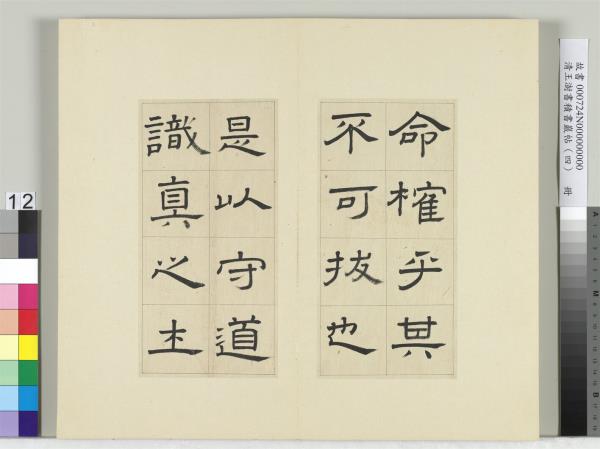 命榷乎其
不可拔也
是以守道
識真之士
故書 000724N000000000
清王澍書積書巖帖（四） 冊
12